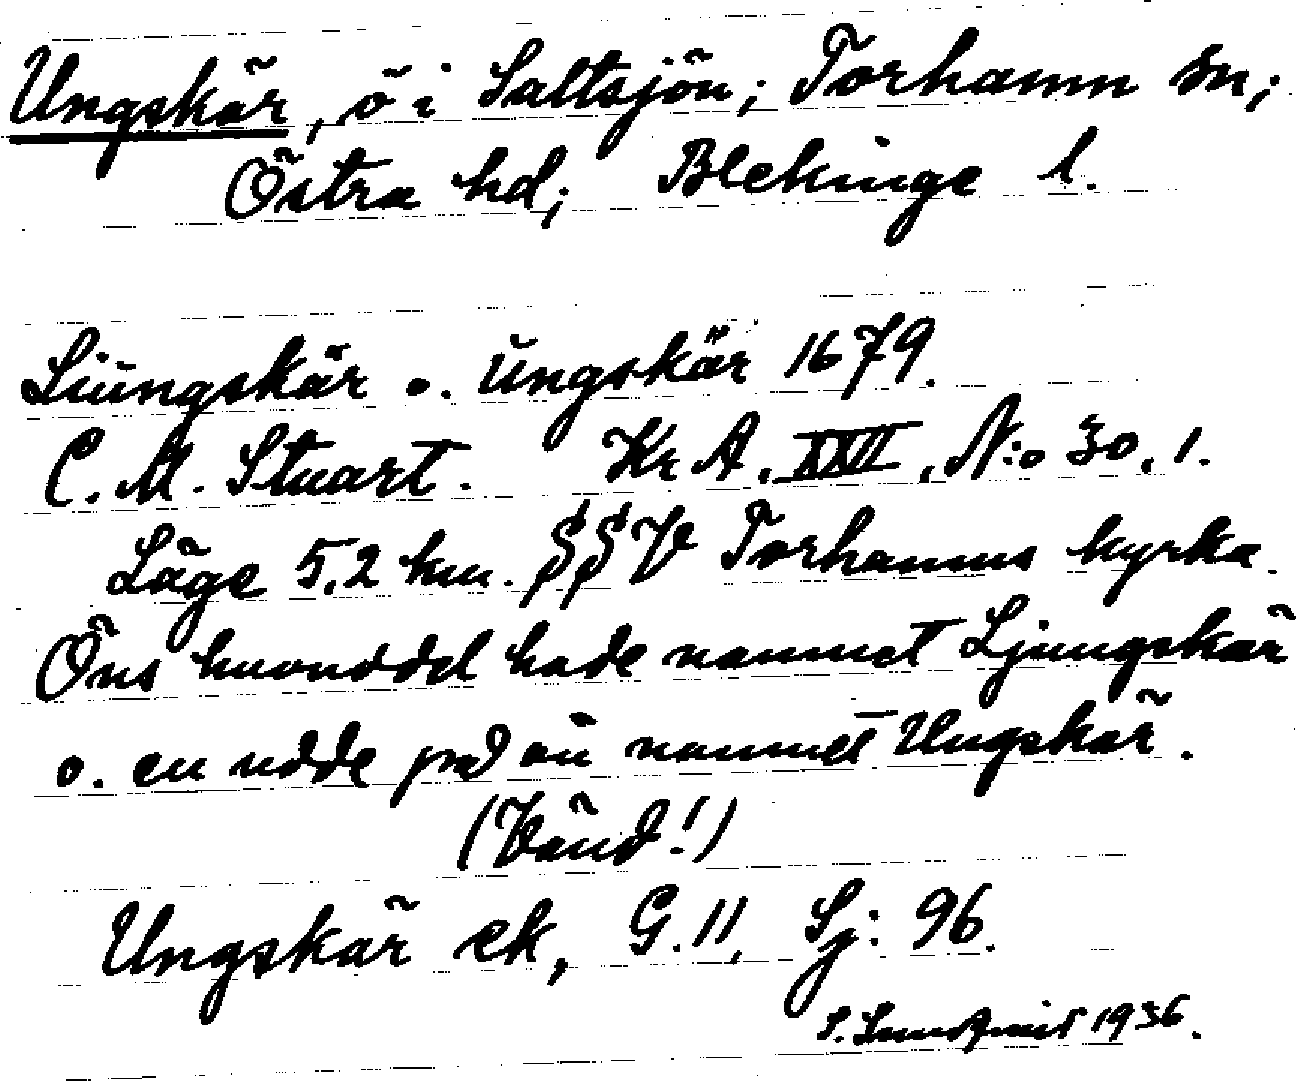 Ungskär, ö i Saltsjön; Torhamn sn;
Östra hd; Blekinge l.
Liungskär o. Ungskär 1679.
C. M. Stuart. Kr A, XXII, N:o 30, 1.
Läge 5,2 km. SSV Torhamns kyrka.
Öns huvuddel hade namnet Ljungskär
o. en udde på ön namnet Ungskär.
(Vänd!)
Ungskär ek, G. 11, Sj: 96.
S. 1936.